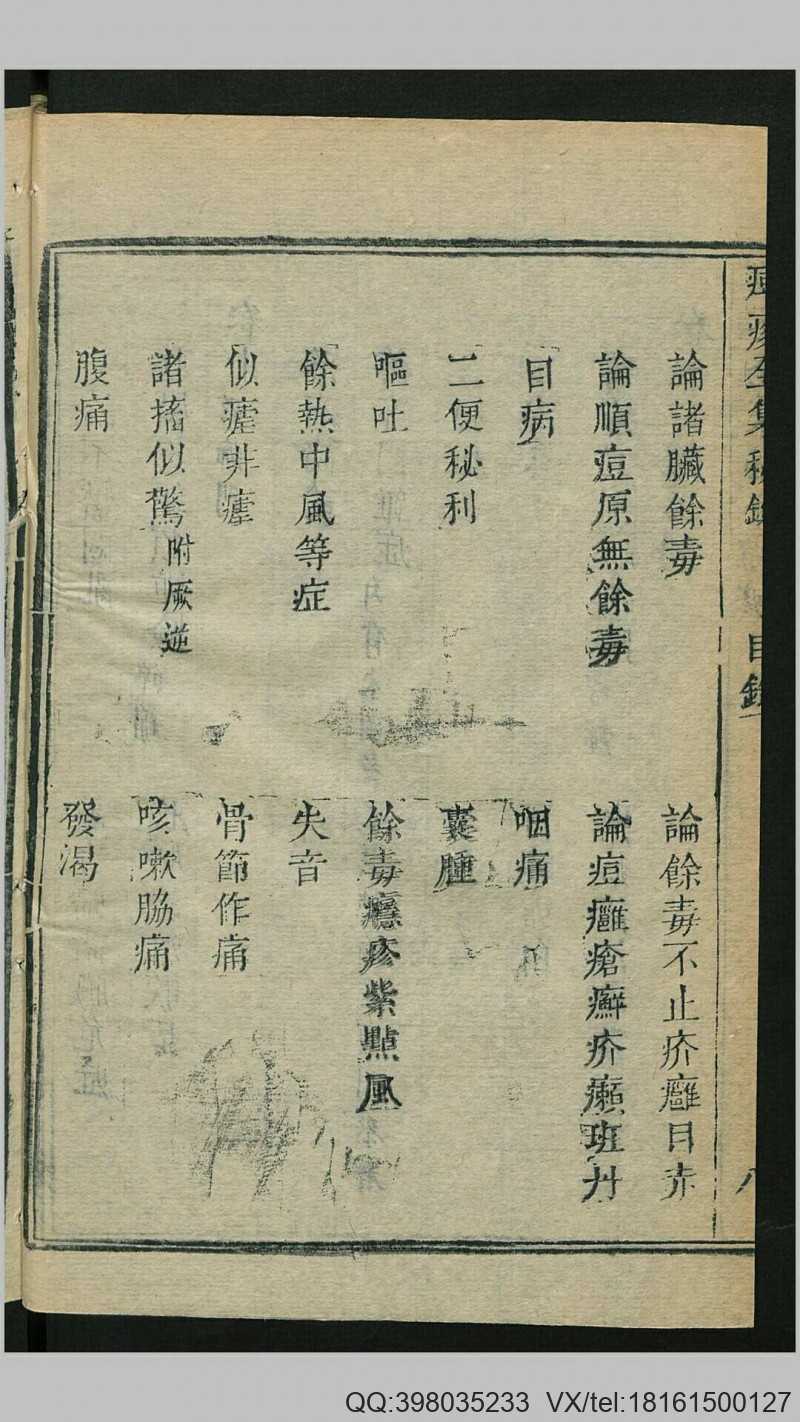 痘疹全集秘錄
目錄
八
論諸臟餘毒
論餘毒不止疥癰目赤
論順痘原無餘毒
論痘癰瘡癬疥癩班丹
目病
咽痛
二便秘利
囊腫
嘔吐
餘毒癮疹紫點風
餘熱中風等症
失音
似瘧非瘧
骨節作痛
諸搐似驚附厥逆
咳嗽脇痛
腹痛
發渴
QQ:398035233 VX/tel:18161500127